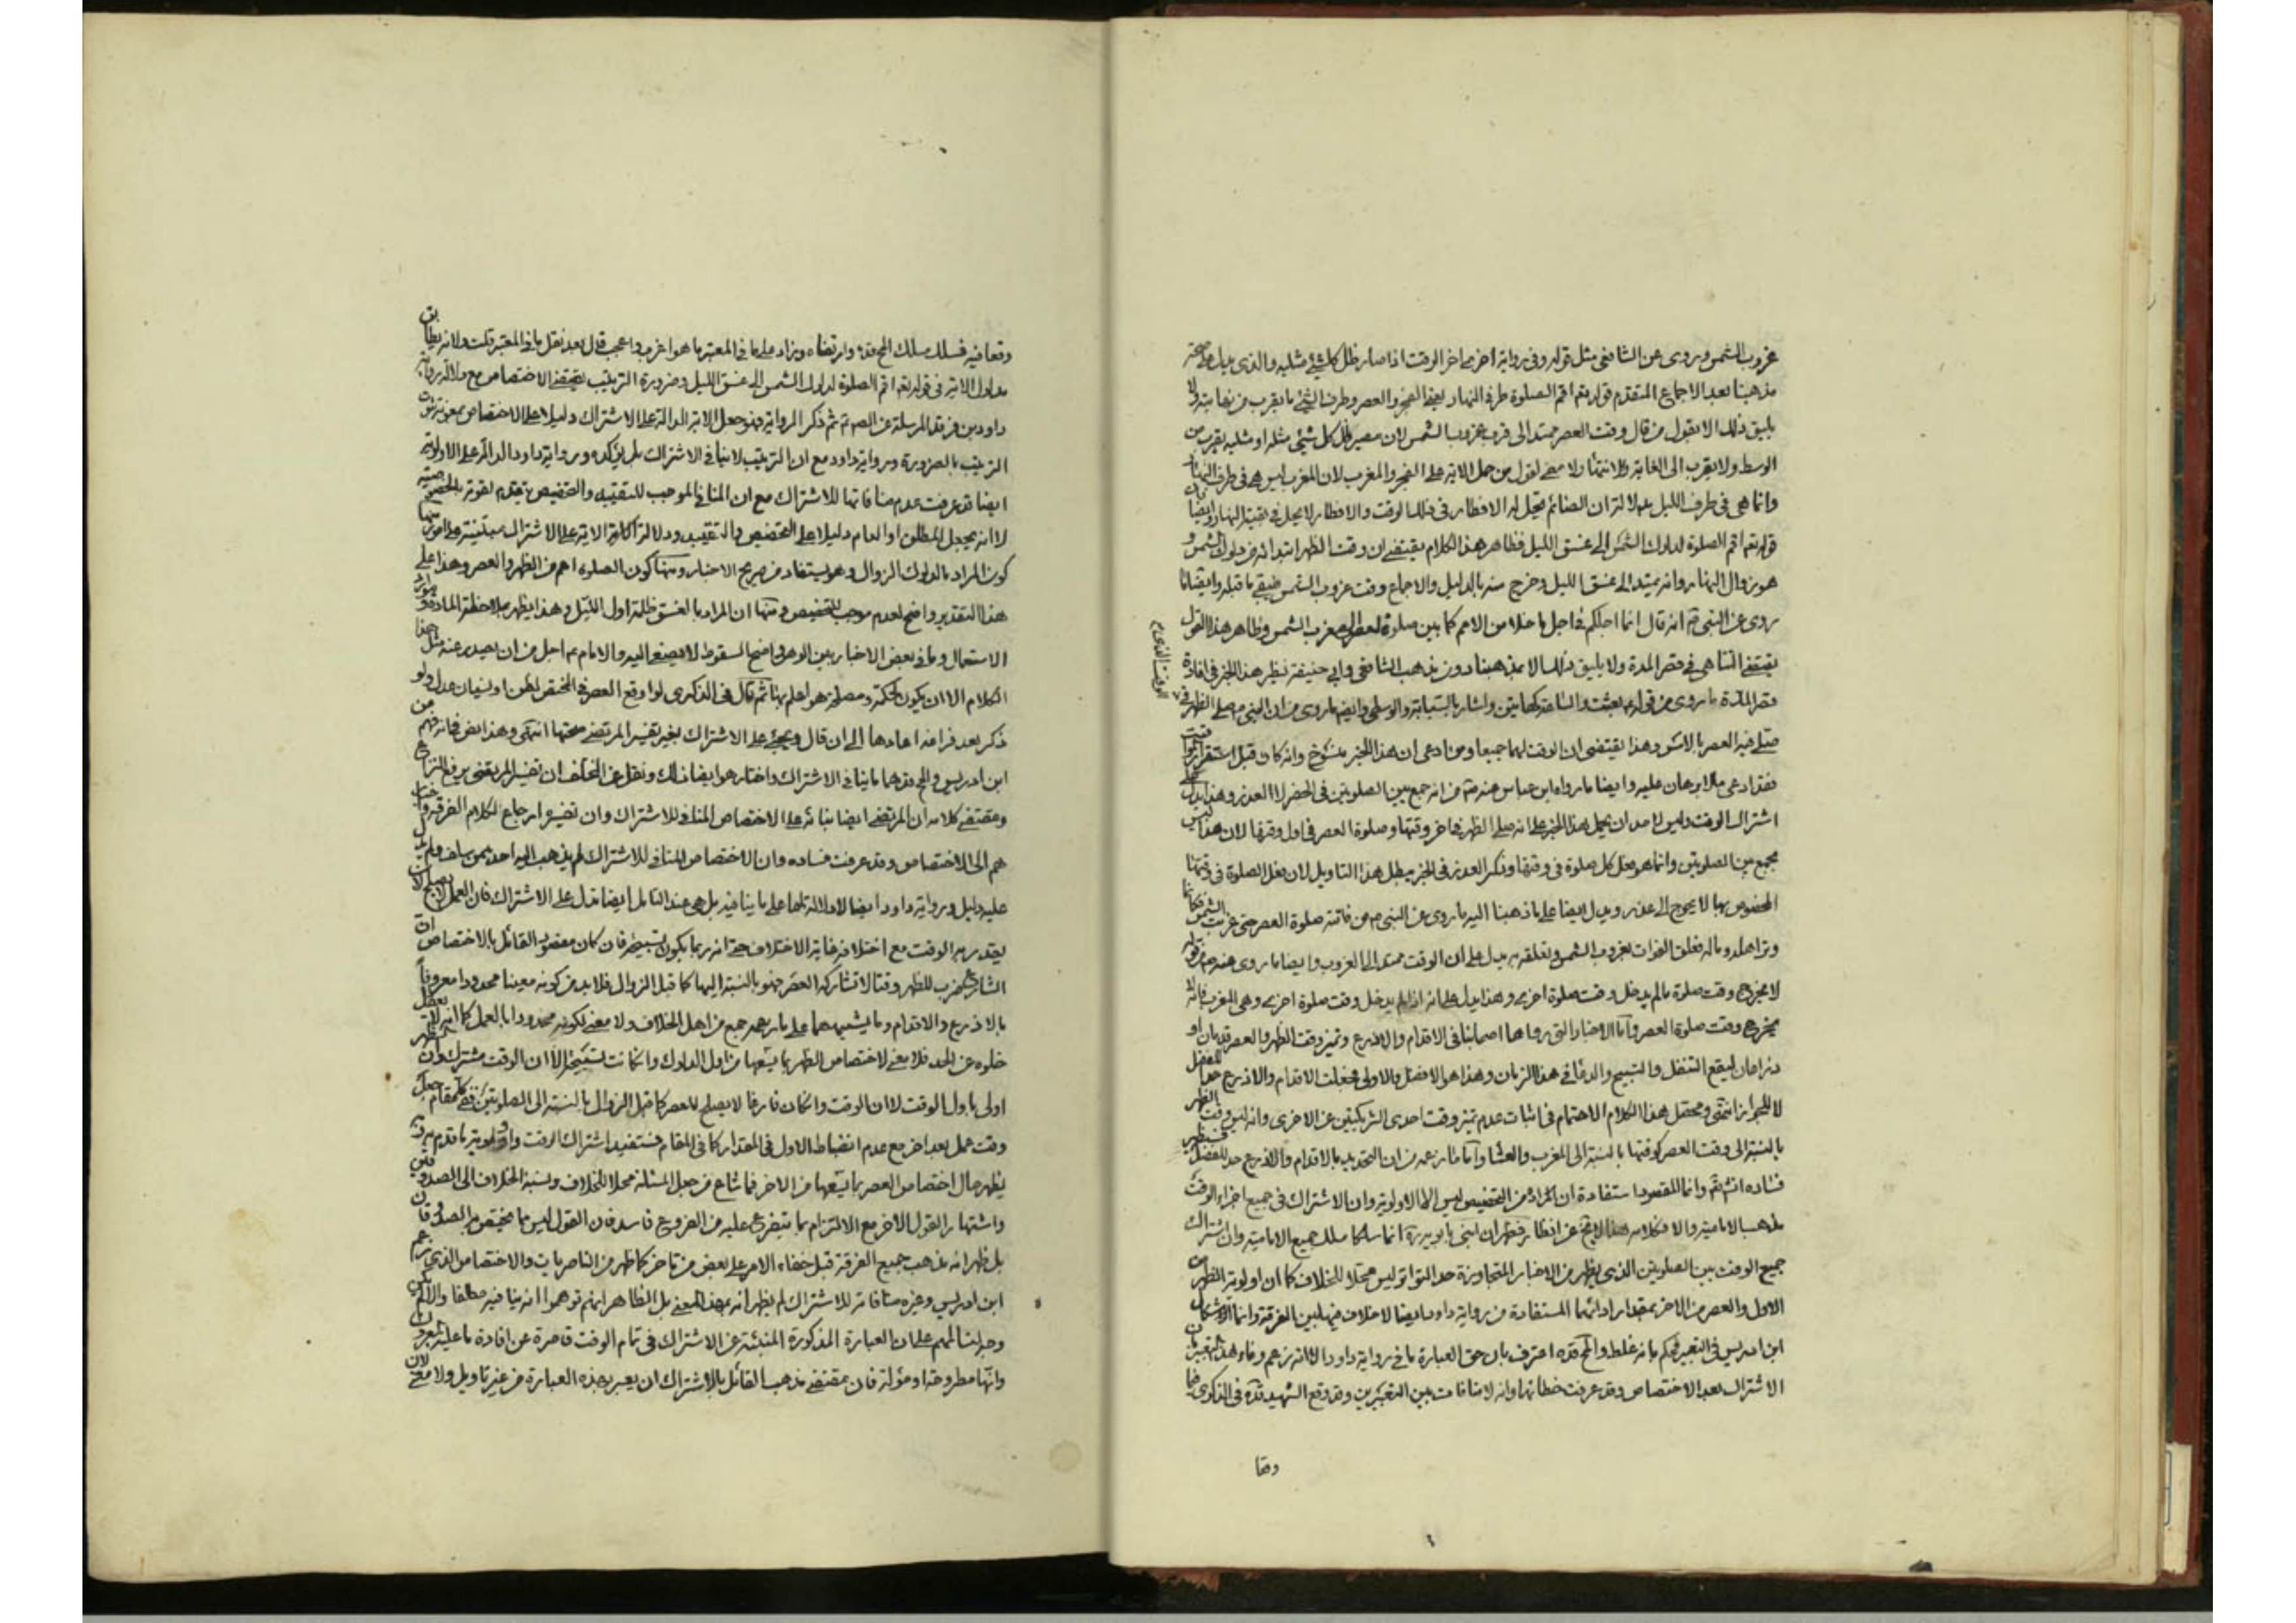 غروب الشمس وروى عن الشافعى مثل قوله وفى رواية اخرى اخر الوقت اذا صار ظل كل شئ مثليه والذى يدل على صحة
مذهبنا بعد الاجماع المتقدم قوله تعم اقم الصلوة طرفى النهار يعنى الفجر والعصر وطرف الشئ ما يقرب من نهايته ولا
يليق ذلك الا بقول من قال وقت العصر ممتد الى قرب غروب الشمس لان مصير ظل كل شئ مثله او مثليه يقرب من
الوسط ولا يقرب الى الغاية والانتهاء ولا معنى لقول من حمل الاية على الفجر والمغرب لان المغرب ليس هى فى طرف النهار
وانما هى فى طرف الليل بدلالة ان الصائم يحل له الافطار فى ذلك الوقت والافطار لا يحل فى بقية النهار وايضا فان
قوله تعم اقم الصلوة لدلوك الشمس الى غسق الليل فظاهر هذا الكلام يقتضى ان وقت الظهر ابتدائه من دلوك الشمس و
هو زوال النهار وانه يمتد الى غسق الليل وخرج منه بالدليل والاجماع وقت غروب الشمس فبقى ما قبله وايضا ما
روى عن النبى ص انه قال انما اجلكم فى اجل ما خلا من الامم كما بين صلوة العصر الى مغرب الشمس وظاهر هذا القول
يقتضى التناهى فى قصر المدة ولا يليق ذلك الا بمذهبنا دون مذهب الشافعى وابى حنيفة نظير هذا الخبر فى افادة
قصر المدة ما روى من قوله ص بعثت والساعة كهاتين واشار بالسبابة والوسطى وايضا ما روى من ان النبى ص صلى الظهر فى
الوقت الذى
صلى فيه العصر بالامس وهذا يقتضى ان الوقت لهما جميعا ومن ادعى ان هذا الخبر منسوخ وانه كان قبل استقرار المواقيت
فقد ادعى ما لا برهان عليه وايضا ما رواه ابن عباس عنه ص من انه جمع بين الصلوتين فى الحضر لا العذر وهذا يدل على
اشتراك الوقت وليس لاحد ان يحمل هذا الخبر على انه صلى الظهر فى اخر وقتها وصلوة العصر فى اول وقتها لان هذا ليس
بجمع بين الصلوتين وانما هو فعل كل صلوة فى وقتها وذكر العذر فى الخبر يبطل هذا التاويل لان فعل الصلوة فى وقتها
المخصوص بها لا يحوج الى عذر ويدل ايضا على ما ذهبنا اليه ما روى عن النبى ص من فاتته صلوة العصر حتى غربت الشمس فكانما
وتر اهله وماله فعلق الفوات بغروب الشمس وتعلقه به يدل على ان الوقت ممتد الى الغروب وايضا ما روى عنه ص من قوله
لا يخرج وقت صلوة ما لم يدخل وقت صلوة اخرى وهذا يدل على انه اذا لم يدخل وقت صلوة اخرى وهى المغرب فانه لا
يخرج وقت صلوة العصر واما الاخبار التى رواها اصحابنا فى الاقدام والاذرع وتميز وقت الظهر والعصر قدمان او
ذراعان ليقع التنفل والتسبيح والدعاء فى هذا الزمان وهذا هو الافضل والاولى فجعلت الاقدام والاذرع حدا للفضل
لا للجواز انتهى ومحصل هذا الكلام الاهتمام فى اثبات عدم تميز وقت احدى الشريكتين عن الاخرى وانه ليس وقت الظهر
بالنسبة الى وقت العصر كوقتها بالنسبة الى المغرب والعشاء واما ما زعمه من ان التحديد بالاقدام والاذرع حد للفضل فسيظهر
فساده انشاء الله وانما المقصود استفادة ان المراد من التخصيص ليس الا الاولوية وان الاشتراك فى جميع اجزاء الوقت
مذهب الامامية والا فكلامه هذا عن انظار فظهر ان ابنى بابويه انما سلكا مسلك جميع الامامية وان اشتراك
جميع الوقت بين الصلوتين الذى يظهر من الاخبار المتجاوزة حد التواتر ليس محلا للخلاف كما ان اولوية الظهر من
الاول والعصر من الاخر بمقدار ادائهما المستفادة من رواية داود ايضا لا خلاف فيها بين الفرقة وانما الاشكال
ابن ادريس فى التعبير فحكم بانه غلط والمح قده اعترف بان حق العبارة ما فى رواية داود الا انه زعم وفاء هذا التعبير بان
الاشتراك بعد الاختصاص وقد عرفت خطائها وانه لا منافات بين التعبيرين وقد وقع الشهيد قده فى الذكرى فيما
وقعا
وقعا فيه فسلك مسلك المح قده وارتضاه وزاد على ما فى المعتبر ما هو اغرب واعجب قال بعد نقل ما فى المعتبر قلت ولانه يطابق
مدلول الاية فى قوله تعم اقم الصلوة لدلوك الشمس الى غسق الليل وضرورة الترتيب يقتضى الاختصاص مع دلالة رواية
داود بن فرقد المرسلة عن الصم ع ثم ذكر الرواية فهو جعل الاية الدالة على الاشتراك دليلا على الاختصاص بمعونة ثبوت
الترتيب بالضرورة ورواية داود مع ان الترتيب لا ينافى الاشتراك بل يؤكده ورواية داود الدالة على الاولوية
ايضا قد عرفت عدم منافاتها للاشتراك مع ان المنافى الموجب للتقييد والتخصيص يتقدم لقوته بالخصوصية
لا انه يجعل المطلق او العام دليلا على التخصيص والتقييد ودلالة الاية على الاشتراك مبتنية على امور منها
كون المراد بالدلوك الزوال وهو يستفاد من صريح الاخبار ومنها كون الصلوة اعم من الظهر والعصر وهذا على
هذا التقدير واضح لعدم موجب للتخصيص ومنها ان المراد بالغسق ظلمة اول الليل وهذا يظهر بملاحظة المادة وموارد
الاستعمال وما فى بعض الاخبار بين الوهن واضح السقوط لا يصغى اليه والامام ع اجل من ان يصدر عنه مثل هذا
الكلام الا ان يكون لحكمة ومصلحة هو اعلم بها ثم قال فى الذكرى لو اوقع العصر فى المختص بظن او نسيان عدل ولو
ذكر بعد فراغه اعادها الى ان قال ويجئ على الاشتراك بغير تفسير المرتضى صحتها انتهى وهذا ايض فانه فهم من
ابن ادريس والمح قدهما ما ينافى الاشتراك واختار هو ايضا ذلك ونقل عن المختلف ان تفسير المرتضى يرفع النزاع
ومقتضى كلامه ان المرتضى ايضا بنائه على الاختصاص المنافى للاشتراك وان تفسيره ارجاع لكلام الفرقة واخبار
هم الى الاختصاص وقد عرفت فساده وان الاختصاص المنافى للاشتراك لم يذهب اليه احد ممن سلف ولم يدل
عليه دليل ورواية داود ايضا لا دلالة لها على ما ينافيه بل هى عند التامل ايضا تدل على الاشتراك فان العمل لا يصلح لان
يقدر به الوقت مع اختلافه غاية الاختلاف حتى انه ربما يكون بتسبيحة فان كان مقصود القائل بالاختصاص ان
الشارع ضرب للظهر وقتا لا تشاركه العصر فهو بالنسبة اليها كما قبل الزوال فلا بد من كونه معينا محدودا معروفا
بالاذرع والاقدام وما يشبههما على ما زعمه جمع من اهل الخلاف ولا معنى لكونه محدودا بالعمل كما انه لا يعقل
خلوه عن الحد فلا معنى لاختصاص الظهر بما يسعها من اول الدلوك وان كانت تسبيحة الا ان الوقت مشترك وان الظهر
اولى باول الوقت لا ان الوقت وان كان فارغا لا يصلح للعصر كما قبل الزوال بالنسبة الى الصلوتين ففى كل مقام جعل
وقت عمل بعد اخر مع عدم انضباط الاول فى المقدار كما فى المقام فنستفيد اشتراك الوقت واولوية ما قدم به وبه
يظهر حال اختصاص العصر بما يسعها من الاخر فما شاع من جعل المسئلة محلا للخلاف ونسبة الخلاف الى الصدوقين
واشتهار القول الاخر مع الالتزام بما يتفرع عليه من الفروع فاسد فان القول ليس مما يختص به الصدوقان
بل ظهر انه مذهب جميع الفرقة قبل خفاء الامر على بعض من تاخر كما ظهر من الناصريات والاختصاص الذى زعم
ابن ادريس وغيره منافاته للاشتراك لم يظهر انه بهذا المعنى بل الظاهر انهم توهموا انه ينافيه مطلقا والا لم يكن
وجه لبنائهم على ان العبارة المذكورة المنبئة عن الاشتراك فى تمام الوقت قاصرة عن افادة ما عليه
وانها مطروحة او مؤلة فان مقتضى مذهب القائل بالاشتراك ان يعبر بهذه العبارة من غير تاويل ولا معنى لان